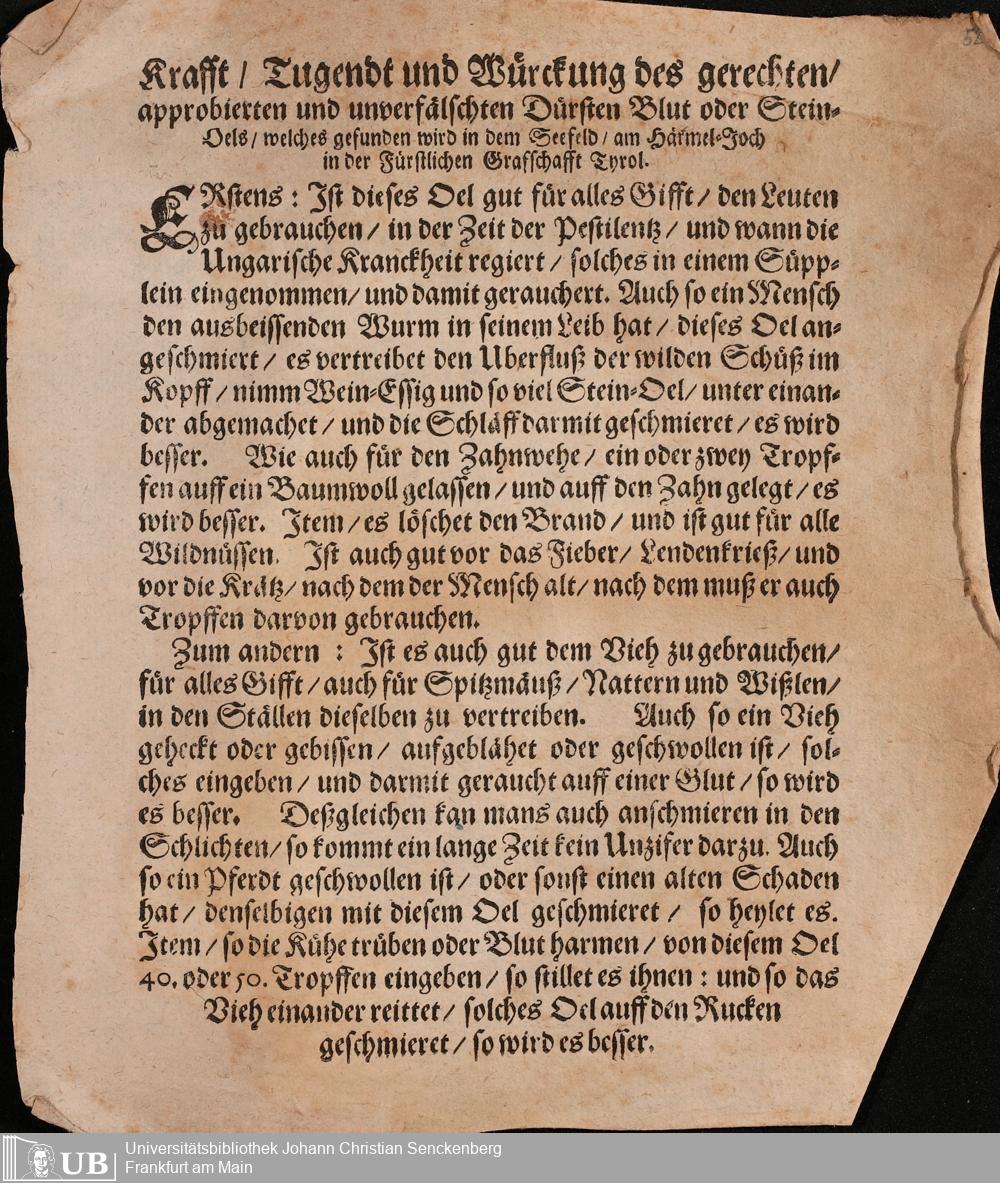 52
Krafft / Tugendt und Würckung des gerechten /
approbierten und unverfälschten Dürsten Blut oder Stein-
Oels / welches gefunden wird in dem Seefeld / am Härmel-Joch
in der Fürstlichen Grafschafft Tyrol.
ERstens : Ist dieses Oel gut für alles Gifft / den Leuten
zu gebrauchen / in der Zeit der Pestilentz / und wann die
Ungarische Kranckheit regiert / solches in einem Süpp-
lein eingenommen / und damit gerauchert. Auch so ein Mensch
den ausbeissenden Wurm in seinem Leib hat / dieses Oel an-
geschmiert / es vertreibet den Uberfluß der wilden Schüß im
Kopff / nimm Wein-Essig und so viel Stein-Oel / unter einan-
der abgemachet / und die Schläff darmit geschmieret / es wird
besser. Wie auch für den Zahnwehe / ein oder zwey Tropf-
fen auff ein Baumwoll gelassen / und auff den Zahn gelegt / es
wird besser. Item / es löschet den Brand / und ist gut für alle
Wildnüssen. Ist auch gut vor das Fieber / Lendenkrieß / und
vor die Krätz / nach dem der Mensch alt / nach dem muß er auch
Tropffen darvon gebrauchen.
Zum andern : Ist es auch gut dem Vieh zu gebrauchen /
für alles Gifft / auch für Spitzmäuß / Nattern und Wißlen /
in den Ställen dieselben zu vertreiben. Auch so ein Vieh
geheckt oder gebissen / aufgeblähet oder geschwollen ist / sol-
ches eingeben / und darmit geraucht auff einer Glut / so wird
es besser. Deßgleichen kan mans auch anschmieren in den
Schlichten / so kommt ein lange Zeit kein Unzifer darzu. Auch
so ein Pferdt geschwollen ist / oder sonst einen alten Schaden
hat / denselbigen mit diesem Oel geschmieret / so heylet es.
Item / so die Kühe trüben oder Blut harmen / von diesem Oel
40. oder 50. Tropffen eingeben / so stillet es ihnen : und so das
Vieh einander reittet / solches Oel auff den Rucken
geschmieret / so wird es besser.
UB
Universitätsbibliothek Johann Christian Senckenberg
Frankfurt am Main